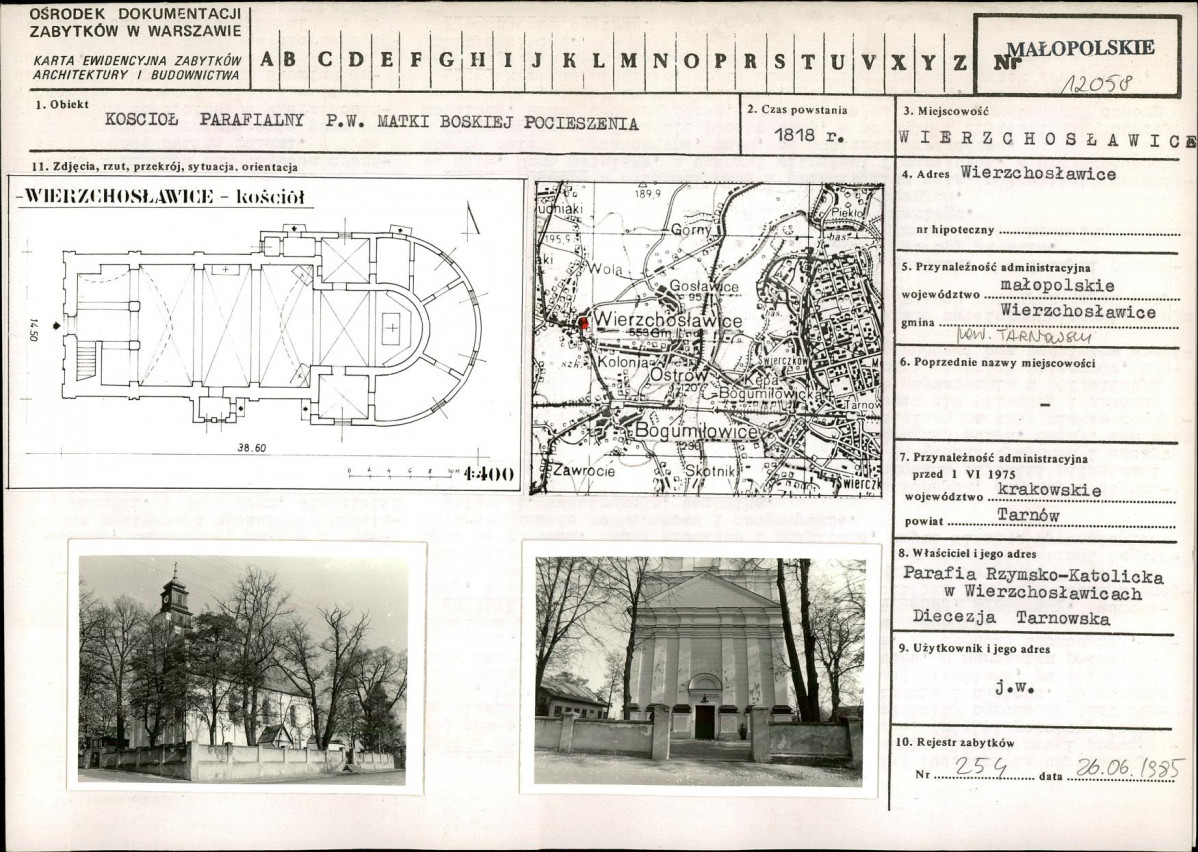 OŚRODEK DOKUMENTACJI
ZABYTKÓW W WARSZAWIE
KARTA EWIDENCYJNA ZABYTKÓW
ARCHITEKTURY I BUDOWNICTWA
A B C D E F G H I J K L M N O P R S T U V X Y Z
Nr
MAŁOPOLSKIE
12058
1. Obiekt
KOSCIOŁ PARAFIALNY P.W. MATKI BOSKIEJ POCIESZENIA
2. Czas powstania
1818 r.
3. Miejscowość
WIERZCHOSŁAWICE
11. Zdjęcia, rzut, przekrój, sytuacja, orientacja
-WIERZCHOSŁAWICE - kościół
14.50
38.60
1:400
189,9
Piekło
Górny
195,9
Wola
Gosławice
Wierzchosławice
Kolonia
Świerczków
Ostrów
Kępa
Bogumiłowicka
Tarnów
Bogumiłowice
Zawrocie
Skotnik
Świerczk
4. Adres Wierzchosławice
nr hipoteczny
5. Przynależność administracyjna
województwo małopolskie
gmina Wierzchosławice
pow. TARNOWSKI
6. Poprzednie nazwy miejscowości
-
7. Przynależność administracyjna
przed 1 VI 1975
województwo krakowskie
powiat Tarnów
8. Właściciel i jego adres
Parafia Rzymsko-Katolicka
w Wierzchosławicach
Diecezja Tarnowska
9. Użytkownik i jego adres
j.w.
10. Rejestr zabytków
Nr 254 data 26.06.1985